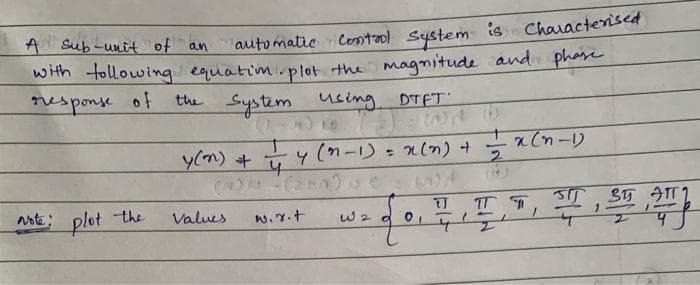 A sub-unit of an automatic control system is characterised
with following equation. plot the magnitude and phase
response of the system using DTFT.
y(n) + 1/4 y(n-1) = x(n) + 1/2 x(n-1)
Note: plot the values w.r.t ω = {0, π/4, π/2, π, 5π/4, 3π/2, 7π/4}